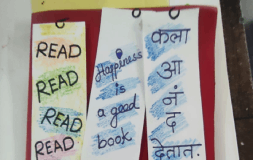 READ
READ
READ
READ
Happiness
is
a good
book
कला
आ
नं
द
देतात.